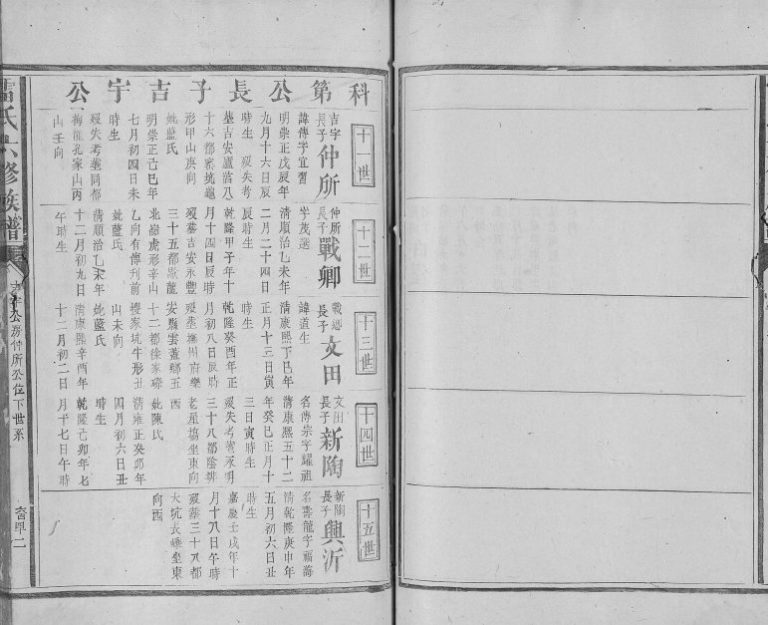 科第公長子吉宇公
十一世
吉宇長子仲所
諱傳字宜習
明崇正戊辰年
九月十六日辰
時生 歿失考
墓吉安廬陵八
十六都窯坑龜
形甲山庚向
妣藍氏
明崇正己巳年
七月初四日未
時生
歿失考塟同都
梅 孔家山丙
山壬向
十二世
仲所長子戰卿
字茂選
清順治乙未年
二月二十四日
辰時生
乾隆甲子年十
月十四日辰時
歿墓吉安永豐
三十五都 龍
北嶺虎形辛山
乙向有傳刊前
妣藍氏
清順治乙未年
十二月初九日
午時生
十三世
長子文田
諱道生
清康熙丁巳年
正月十三日寅
時生
乾隆癸酉年正
月初八日辰時
歿塟撫州府樂
安縣雲蓋鄉五
十二都徐家
樓家坑牛形丑
山未向
妣藍氏
清康熙辛酉年
十二月初二日
十四世
文田長子新陶
名傳宗字耀祖
清康熙五十二
年癸巳正月十
三日寅時生
歿失考塟永明
三十八都陰
老屋場坐東向
西
妣陳氏
清雍正癸卯年
四月初六日丑
時生
乾隆己卯年七
月十七日午時
十五世
新陶長子興沂
名壽龍字福海
清乾隆庚申年
五月初六日丑
時生
嘉慶壬戌年十
月十八日午時
歿塟三十八都
大坑長 坐東
向西
雷氏六修族譜
公房仲所公位下世系